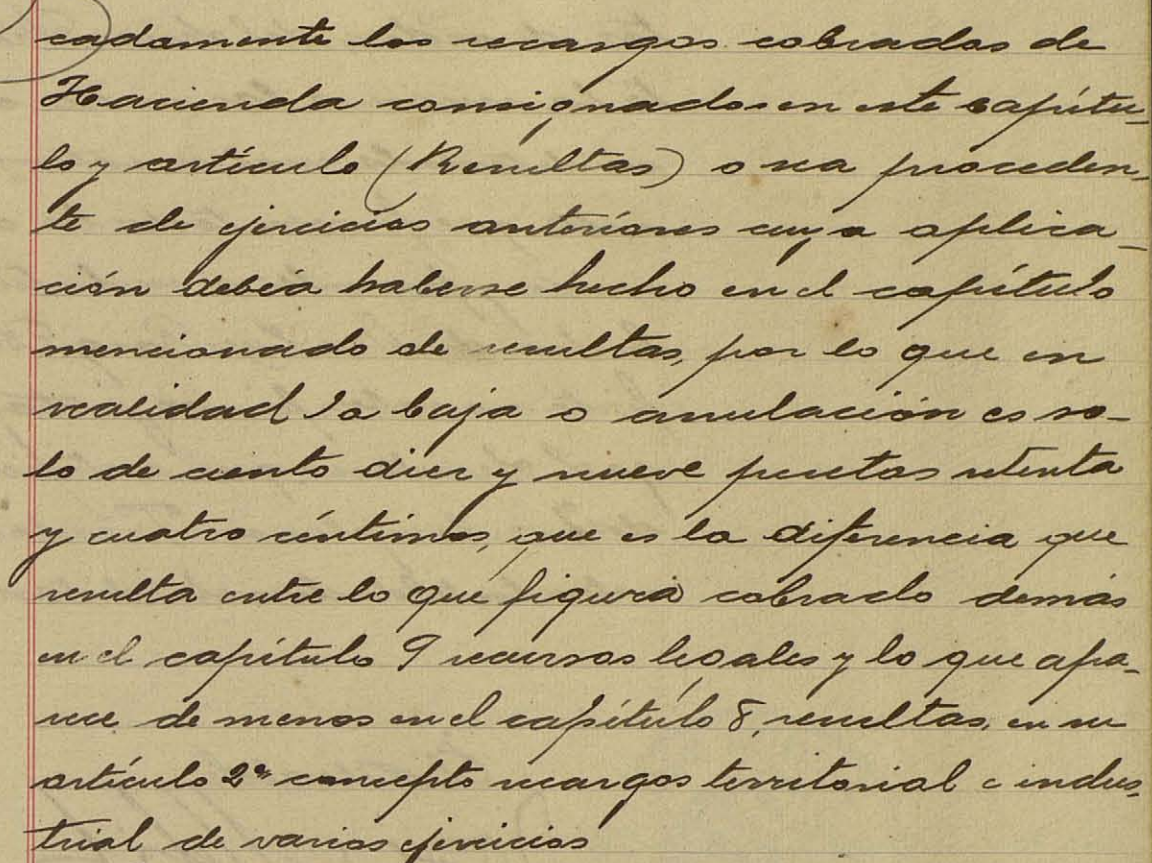 cadamente los recargos cobrados de
Hacienda consignados en este capítu-
lo y artículo (Resultas) o sea proceden-
te de ejercicios anteriores cuya aplica-
ción debía haberse hecho en el capítulo
mencionado de resultas, por lo que en
realidad la baja o anulación es so-
lo de ciento diez y nueve pesetas setenta
y cuatro céntimos, que es la diferencia que
resulta entre lo que figura cobrado demás
en el capítulo 9 recursos legales y lo que apa-
rece de menos en el capítulo 8, resultas, en su
artículo 2º concepto recargos territorial e indus-
trial de varios ejercicios